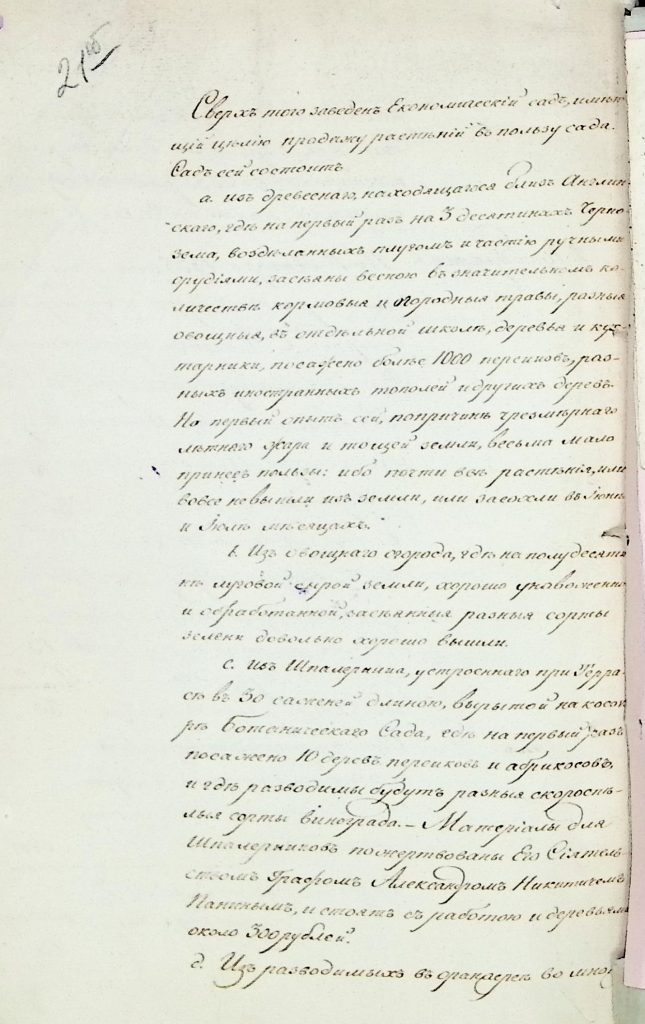 21об
Сверхъ того заведенъ Економическій садъ, имѣю-
щій цѣлію продажу растѣній въ пользу сада.
Садъ сей состоитъ
а. изъ древеснаго, находящагося близь Англин-
скаго, гдѣ на первый разъ на 3 десятинахъ Черно-
зема, воздѣланныхъ плугомъ и частію ручными
орудіями, засѣяны весною въ значительномъ ко-
личествѣ кормовыя и породныя травы, разныя
овощныя, въ отдѣльной школѣ, деревья и кус-
тарники, посажено болѣе 1000 персиковъ, раз-
ныхъ иностранныхъ тополей и другихъ деревъ.
Но первый опытъ сей, попричинѣ чрезмѣрнаго
лѣтняго жара и тощей земли, весьма мало
принесъ пользы: ибо почти всѣ растѣнія, или
вовсе невышли изъ земли, или засохли въ Іюнѣ
и Іюлѣ мѣсяцахъ.
b. Изъ овощнаго огорода, гдѣ на полудесяти-
нѣ луговой сырой земли, хорошо унавоженной
и обработанной, засѣянныя разныя сорты
зелени довольно хорошо вышли.
с. изъ Шпалерника, устроеннаго при Терра-
сѣ въ 30 саженей длиною, вырытой на косо-
рѣ Ботаническаго Сада, гдѣ на первый разъ
посажено 10 деревъ персиковъ и абрикосовъ,
и гдѣ разводимы будутъ разныя скороспѣ-
лыя сорты винограда. – Матеріалы для
Шпалерниковъ пожертвованы Его Сіятель-
ствомъ Графомъ Александромъ Никитичемъ
Панинымъ, и стоятъ съ работою и деревьями
около 300 рублей.
d. Изъ разводимыхъ въ оранжереѣ во мно-